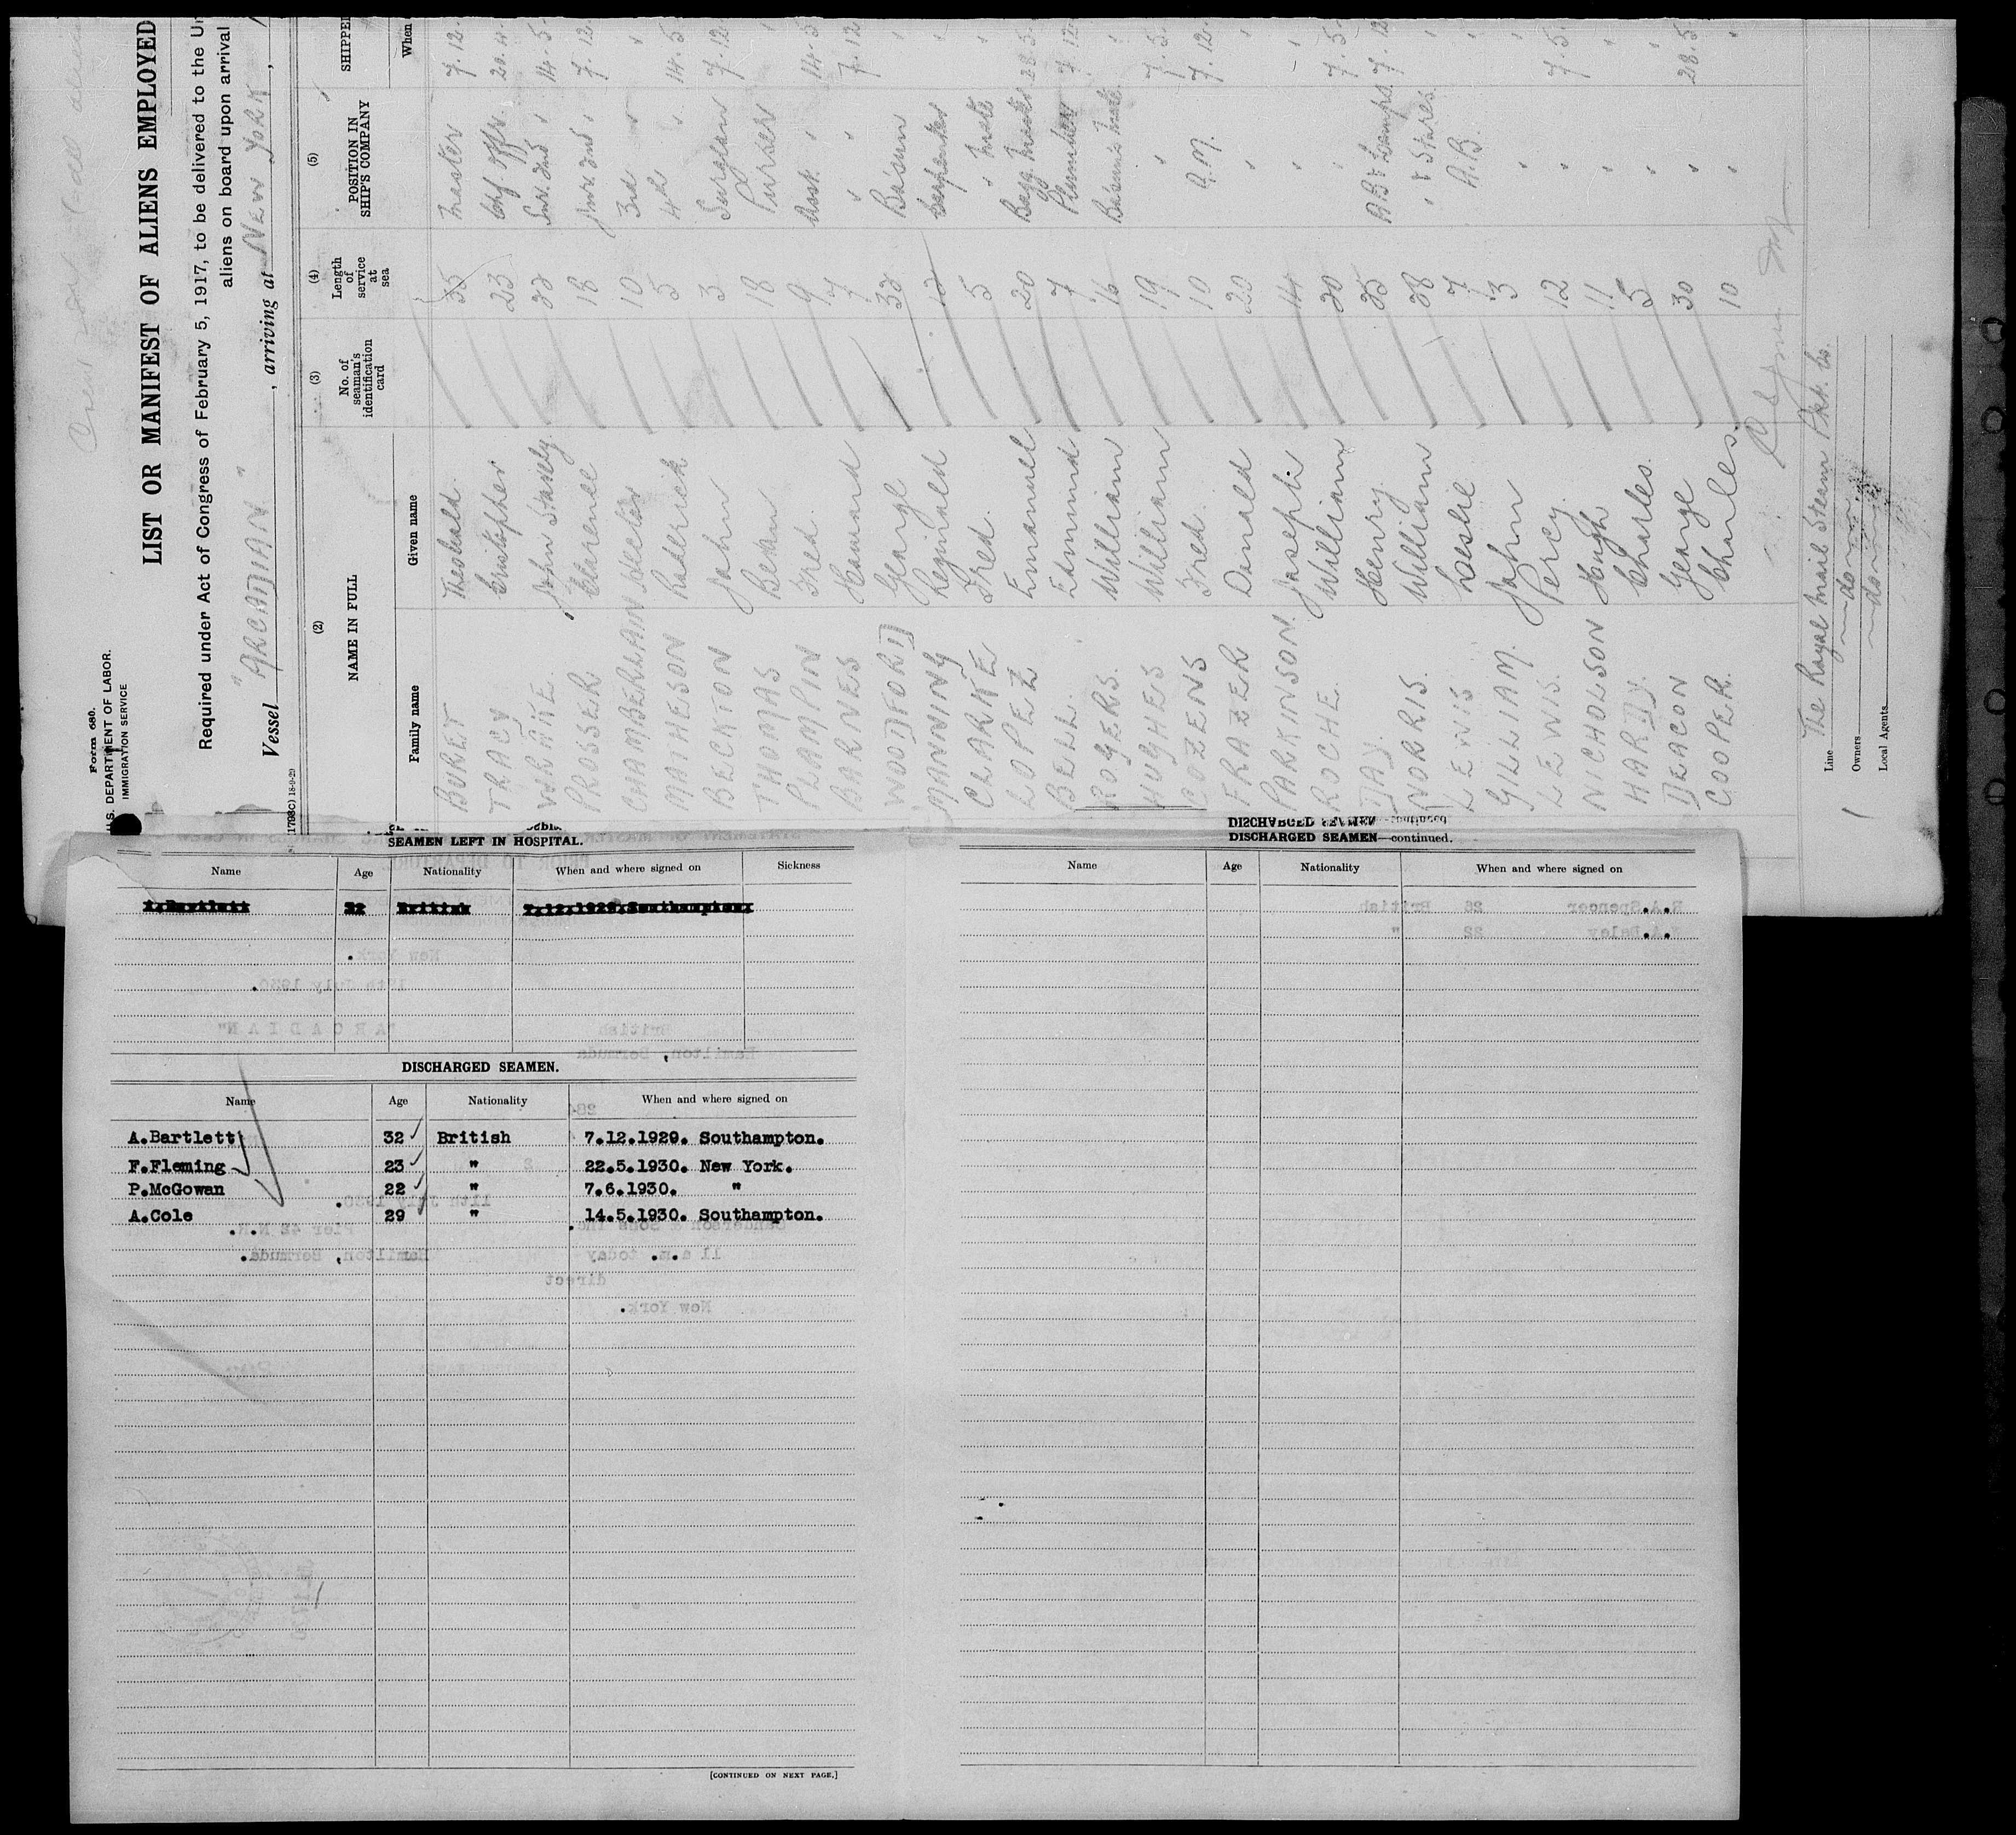 Form 680.
U.S. DEPARTMENT OF LABOR.
IMMIGRATION SERVICE
LIST OR MANIFEST OF ALIENS EMPLOYED
Required under Act of Congress of February 5, 1917, to be delivered to the
aliens on board upon arrival
Vessel "ARCADIAN", arriving at New York,
(2) (3) (4) (5)
NAME IN FULL No. of seaman's identification card Length of service at sea POSITION IN SHIP'S COMPANY SHIPPED
Family name Given name When
BURET Theobald 35 Master 7.12.
TRACY Cristopher 23 Chf. Offr. 20.4.
John Stanley 22 Snr. 2nd " 14.5.
PROSSER Clarence 18 Jnr. 2nd " 7.12.
CHAMBERLAIN Hector 10 3rd " "
MATHESON Roderick 5 4th " 14.5
BECKTON John 3 Surgeon 7.12.
THOMAS 18 Purser "
Fred. 9 Asst. " 14.5
BARNES Howard 7 " " 7.12
WOODFORD George 32 Bo'sun "
MANNING Reginald 12 Carpenter "
CLARKE Fred. 5 " Mate "
LOPEZ Emanuel 20 Bagg. Master 28.5.
BELL. Edmund 7 Plumber 7.12.
ROGERS. William 16 Bo'sun's Mate. "
HUGHES William 19 " 7.5.
COZENS Fred. 10 Q.M. 7.12.
FRAZER Donald 20 " "
PARKINSON. Joseph 14 " "
ROCHE. William 30 " 7.5.
DAY. Henry. 35 A.B. & Lamps. 7.12
NORRIS. William 38 " & Stores. "
LEWIS Leslie 7 A.B. "
GILLIAM. John 3 " "
LEWIS. Percy. 12 " 7.5.
NICHOLSON Hugh 11 " "
HARDY. Charles. 5 " "
DEACON George 30 " 28.5.
COOPER. Charles. 10 " "
Line The Royal Mail Steam Pkt. Co.
Owners do
Local Agents do
SEAMEN LEFT IN HOSPITAL.
Name Age Nationality When and where signed on Sickness
A.Bartlett 32 British 7.12.1929.Southampton.
DISCHARGED SEAMEN.
Name Age Nationality When and where signed on
A.Bartlett 32 British 7.12.1929. Southampton.
F.Fleming 23 " 22.5.1930. New York.
P.McGowan 22 " 7.6.1930. "
A.Cole 29 " 14.5.1930. Southampton.
[CONTINUED ON NEXT PAGE.]
DISCHARGED SEAMEN—continued.
Name Age Nationality When and where signed on